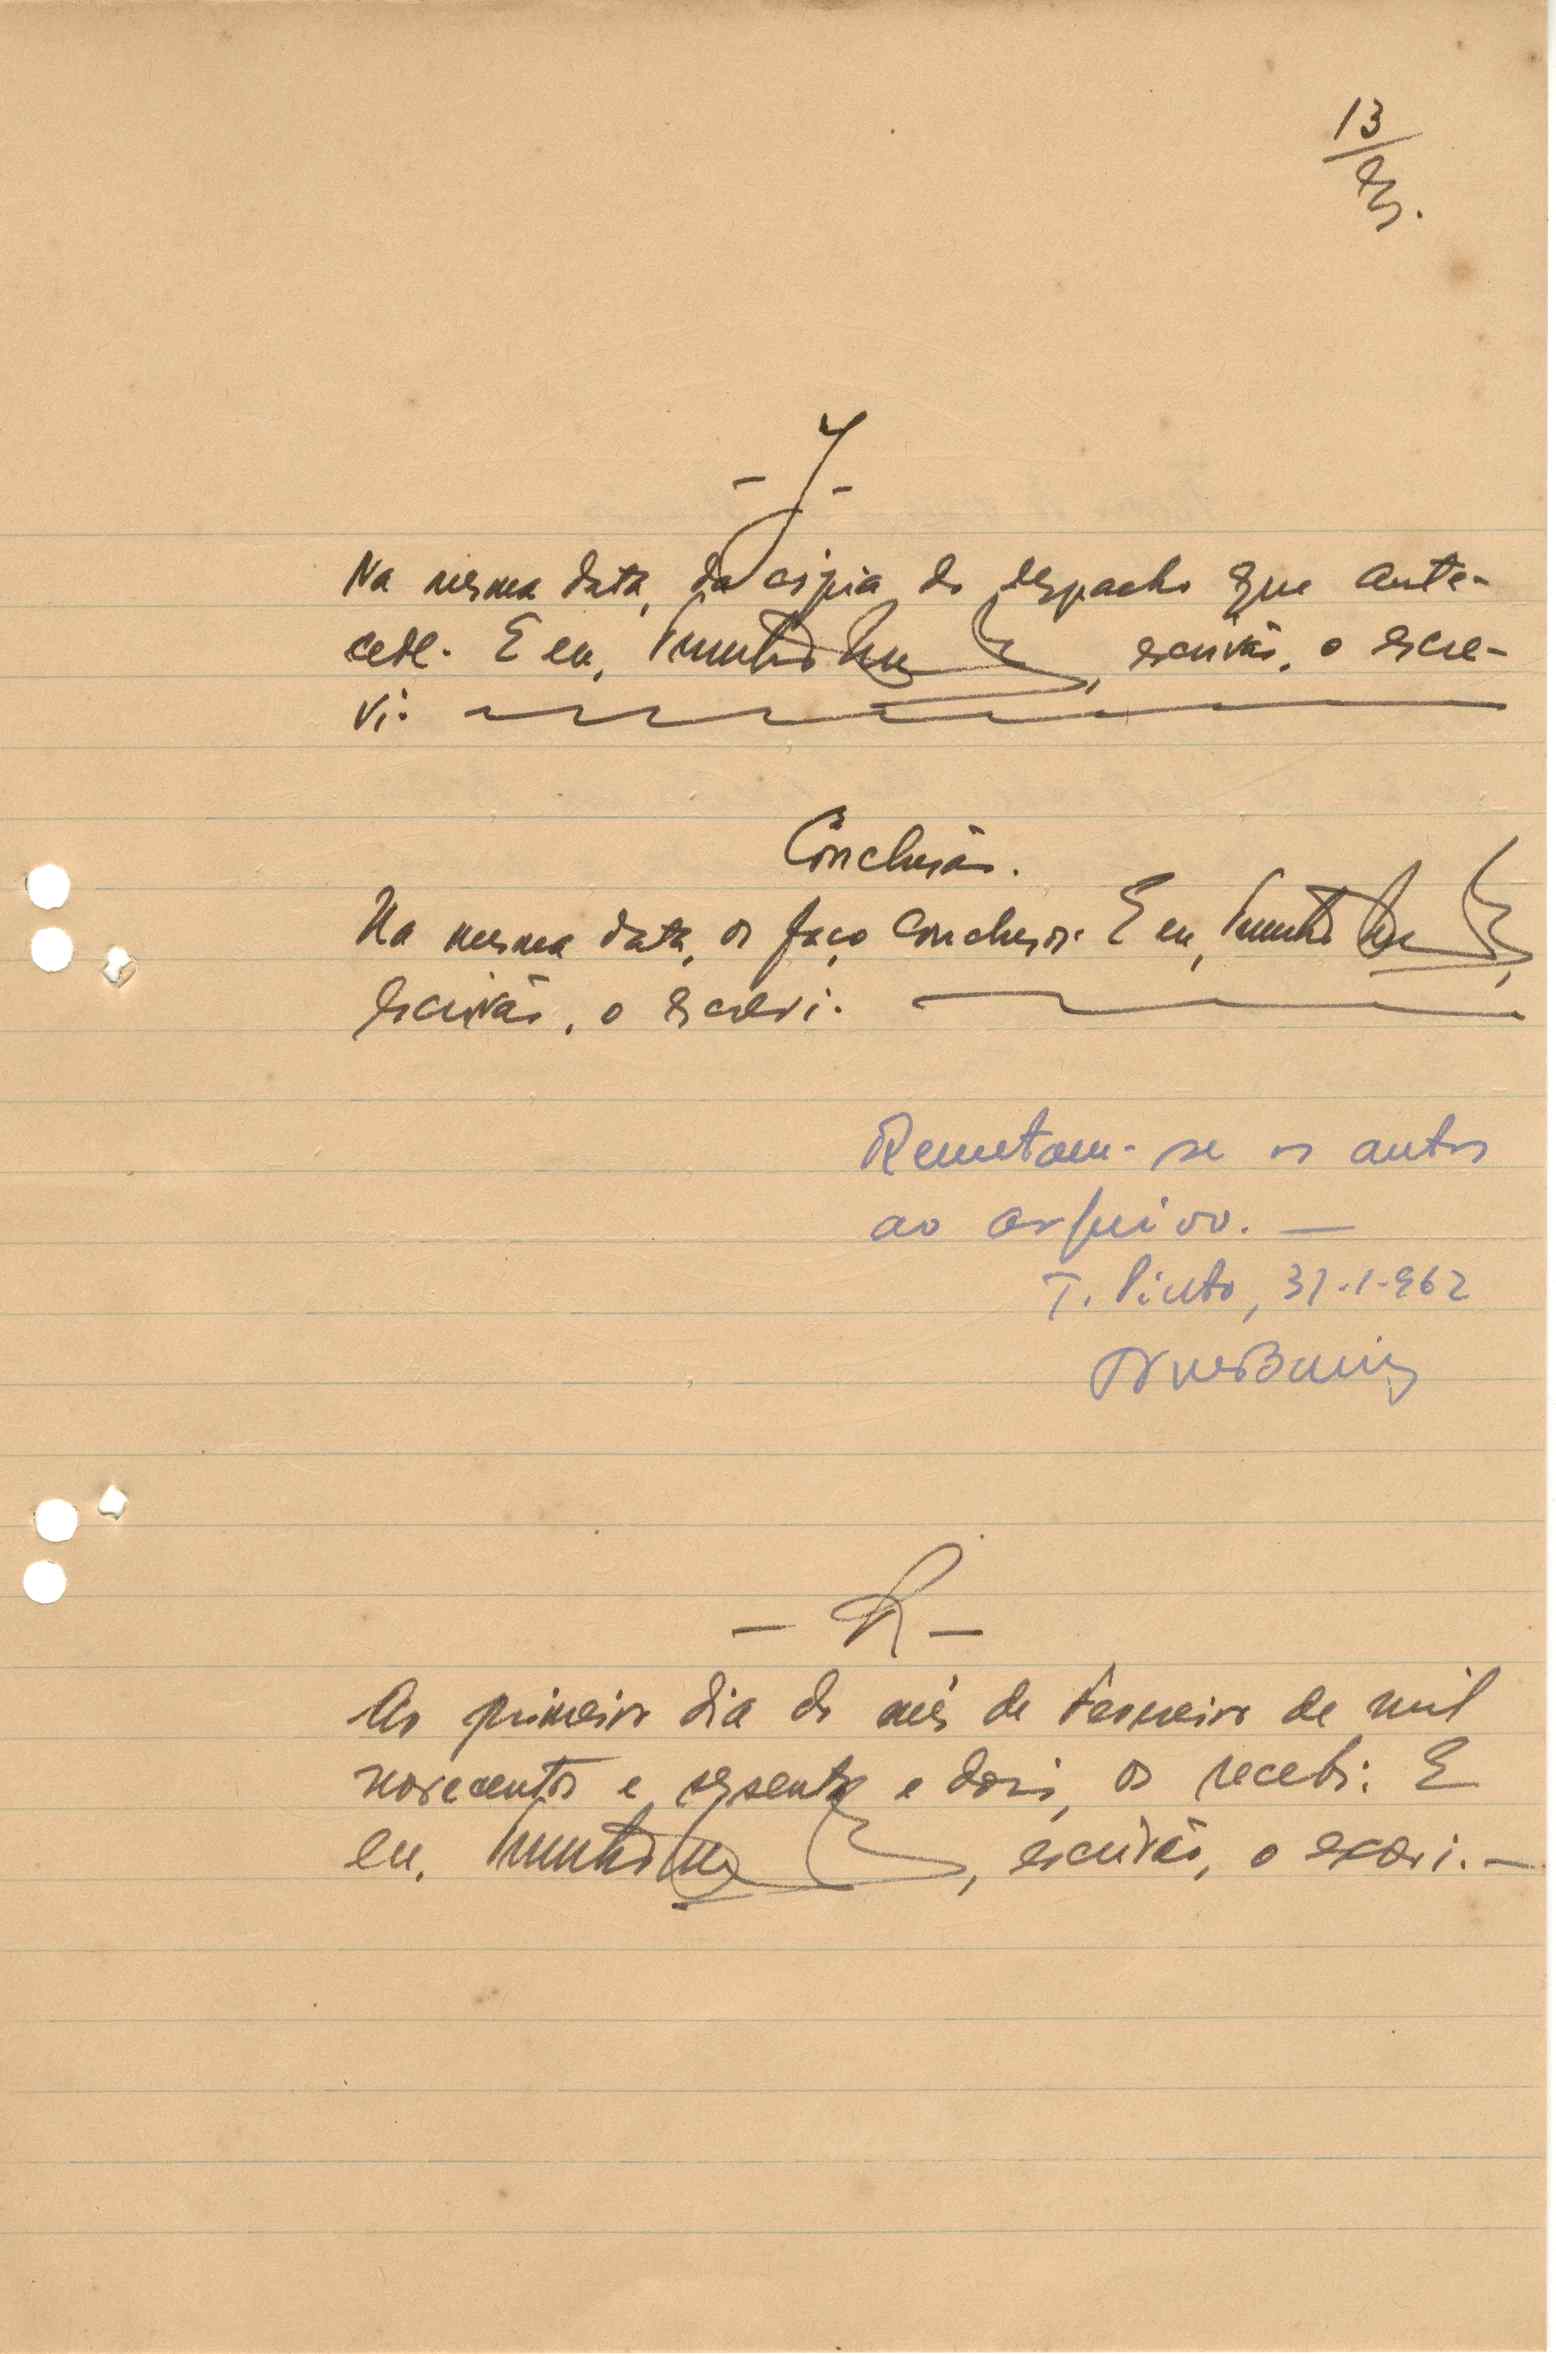 13
- J -
Na mesma data, da cópia do despacho que ante-
cede. E eu, escrivão, o escre-
vi.
Conclusão.
Na mesma data, os faço conclusos. E eu,
escrivão, o escrevi.
Remetam-se os autos
ao arquivo. —
T. Pinto, 31-1-962
- R -
Ao primeiro dia do mês de fevereiro de mil
novecentos e sessenta e dois, os recebi. E
eu, , escrivão, o escrevi. -